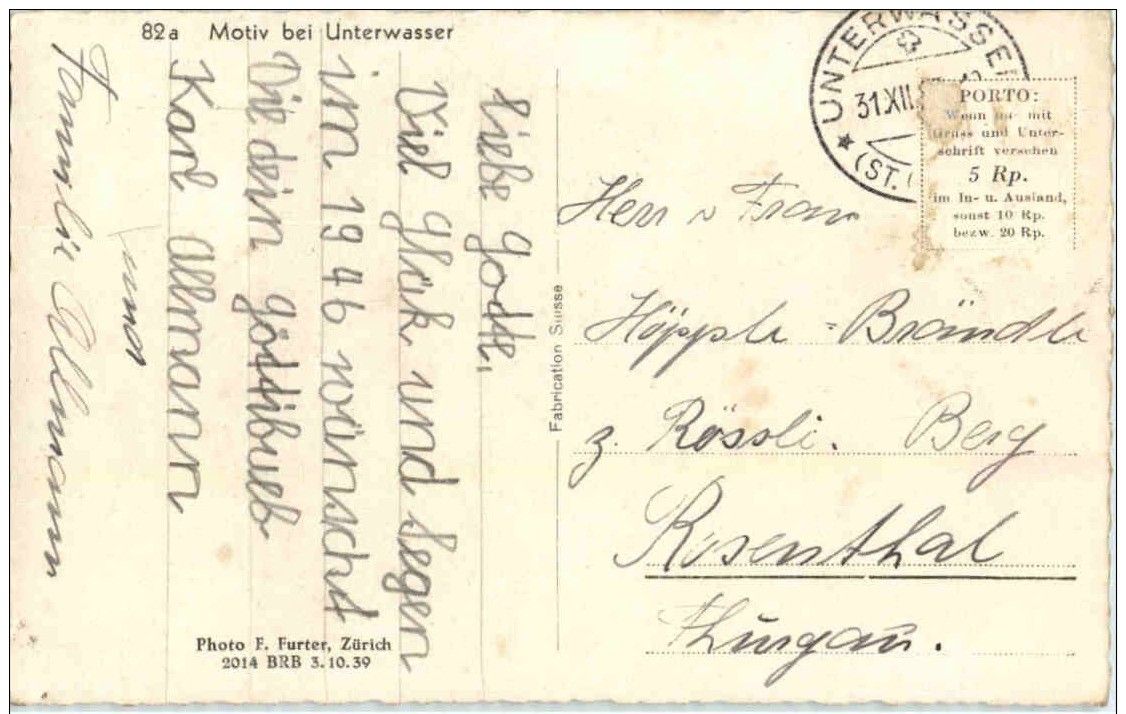 82a Motiv bei Unterwasser
Liebe Godte,
Viel Glük und Segen
im 1946 wünscht
Die dein göttibueb
Karl Allmann
und
Familie Allmann
Photo F. Furter, Zürich
2014 BRB 3.10.39
Fabrication Suisse
UNTERWASSER
31.XII.
(ST.
PORTO:
Wenn nur mit
Gruss und Unter-
schrift versehen
5 Rp.
im In- u. Ausland,
sonst 10 Rp.
bezw. 20 Rp.
Herr u Frau
Höppli - Brändle
z. Rössli. Berg
Rosenthal
Thurgau.